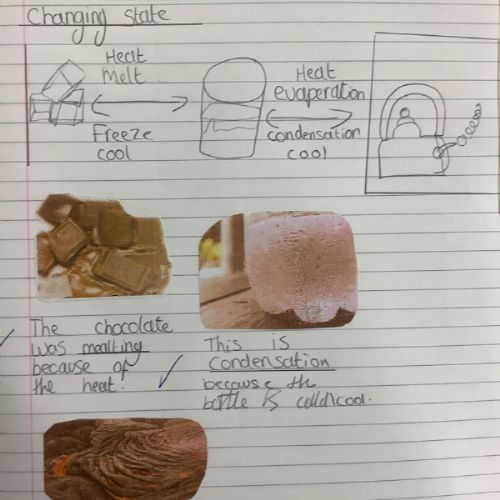 Changing state
Heat
Melt
Freeze
cool
Heat
evaperation
condensation
cool
The chocolate
was mealting
because of
the heat.
This is
Condensation
because the
bottle is celld\cool.